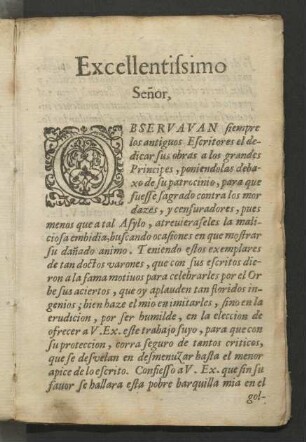 Excellentiſsimo
Señor,
OBSERVAVAN ſiempre
los antiguos Eſcritores el de-
dicar sus obras a los grandes
Principes, poniendolas deba-
xo de su patrocinio, para que
fueſſe ſagrado contra los mor
dazes, y cenſuradores, pues
menos que a tal Aſylo, atrevieraſeles la mali-
cioſa embidia, buſcando ocaſiones en que moſtrar
ſu dañado animo. Teniendo eſtos exemplares
de tan doctos varones, que con ſus eſcritos die-
ron a la fama motivos para celebrarles por el Or
be ſus aciertos, que oy aplauden tan floridos in-
genios; bien haze el mio en imitarles, ſino en la
erudicion, por ſer humilde, en la eleccion de
ofrecer a V. Ex. eſte trabajo ſuyo, para que con
ſu proteccion, corra ſeguro de tantos criticos,
que ſe deſvelan en deſmenuzar haſta el menor
apice de lo eſcrito. Confieſſo a V. Ex. que ſin ſu
favor ſe hallara eſta pobre barquilla mia en el
gol-